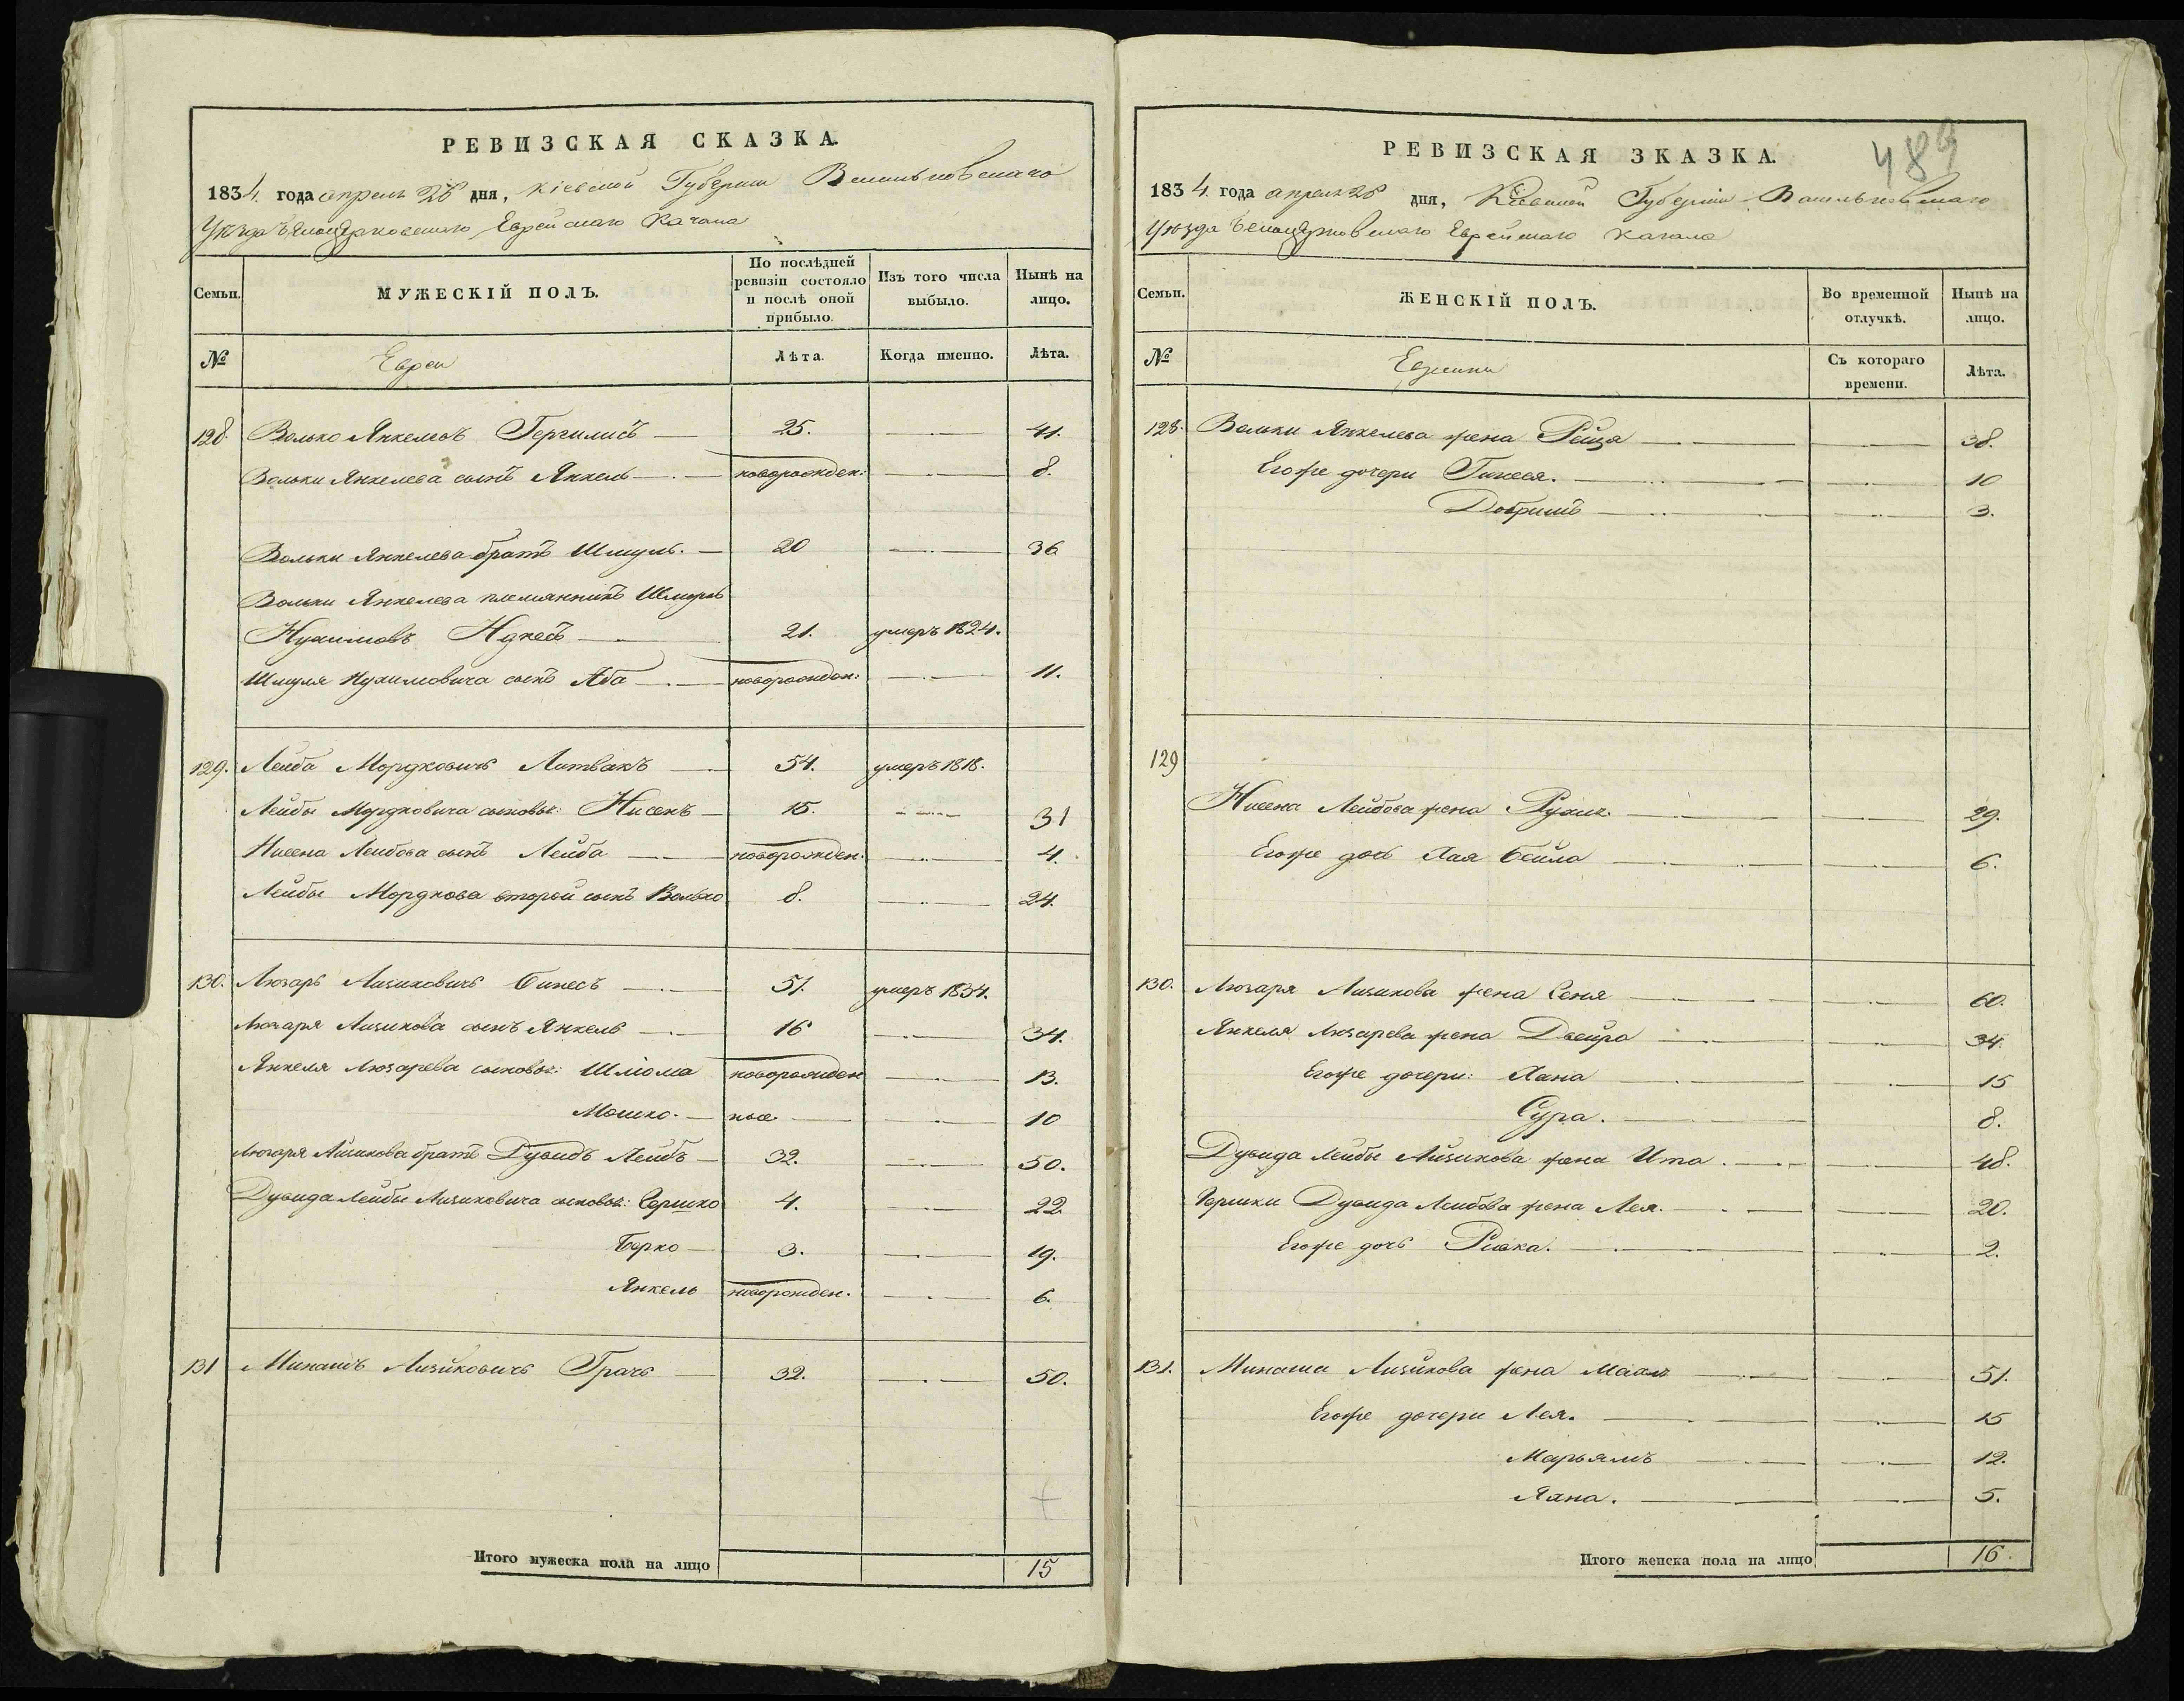 РЕВИЗСКАЯ СКАЗКА.
1834. года апреля 28 дня, Кіевской Губерніи Васильковскаго
Уѣзда Бѣлоцерковскаго Еврейскаго Кагала
Семьи.
МУЖЕСКІЙ ПОЛЪ.
По послѣдней ревизіи состояло и послѣ оной прибыло.
Изъ того числа выбыло.
Нынѣ на лицо.
№
Евреи
Лѣта.
Когда именно.
Лѣта.
128. Волько Янкелевъ — 25. — 41.
Вольки Янкелева сынъ Янкель — новорожден: — 8.
Вольки Янкелева братъ Шмуль. — 20 — 36
Вольки Янкелева племянникъ Шмуль
Нухимовъ — 21. умеръ 1824.
Шмуля Нухимовича сынъ Аба — новорожден: — 11.
129. Лейба Мордковичъ Литвакъ — 54. умеръ 1818.
Лейбы Мордковича сыновья: Нисенъ — 15. — 31
Нисена Лейбова сынъ Лейба — новорожден. — 4.
Лейбы Мордкова второй сынъ Волько 8. — 24.
130. Люзаръ Айзиковичъ Бинесъ — 51. умеръ 1834.
Люзаря Айзикова сынъ Янкель — 16 — 34.
Янкеля Люзарева сыновья: Шліома новорожден — 13.
Мошко. — ные — 10
Люзаря Айзикова братъ Дувидъ Лейбъ — 32. — 50.
Дувида Лейбы Айзиковича сыновья: Гершко 4. — 22.
Берко — 3. — 19.
Янкель новорожден. — 6.
131 Минашъ Айзиковичъ Грачъ — 32. — 50.
Итого мужеска пола на лицо 15
489
РЕВИЗСКАЯ ЗКАЗКА.
1834. года апреля 28 дня, Кіевской Губерніи Васильковскаго
Уѣзда Бѣлоцерковскаго Еврейскаго Кагала
Семьи.
ЖЕНСКІЙ ПОЛЪ.
Во временной отлучкѣ.
Нынѣ на лицо.
№
Еврейки
Съ котораго времени.
Лѣта.
128. Вольки Янкелева жена Рейза — 38.
Егоже дочери Гинеся. — 10
Добришъ — 3.
129
Нисена Лейбова жена Рухля. — 29.
Егоже дочь Хая Бейла — 6.
130. Люзаря Айзикова жена Сеня — 60.
Янкеля Люзарева жена Двейра — 34.
Егоже дочери: Хана — 15
Сура. — 8.
Дувида Лейбы Айзикова жена Ита. — 48.
Гершки Дувида Лейбова жена Лея. — 20.
Егоже дочь Ривка. — 2.
131. Минаша Айзикова жена — 51.
Егоже дочери Лея. — 15
Марьямъ — 12.
Хана. — 5.
Итого женска пола на лицо 16.